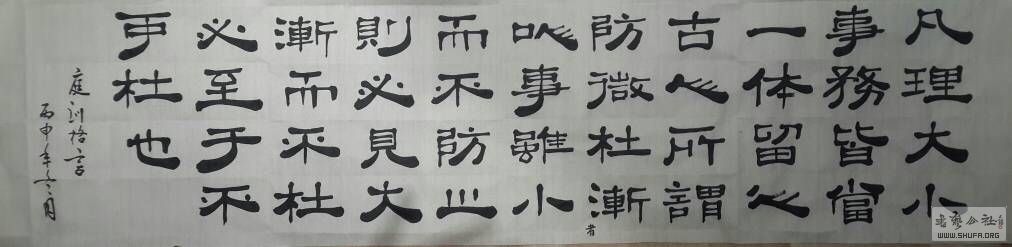 凡理大小
事務皆當
一体留心
古心所謂
防微杜漸者
以事雖小
而不防之
則必見大
漸而不杜
必至于不
可杜也
庭训格言
丙申年月
书艺公社
WWW.SHUFA.ORG